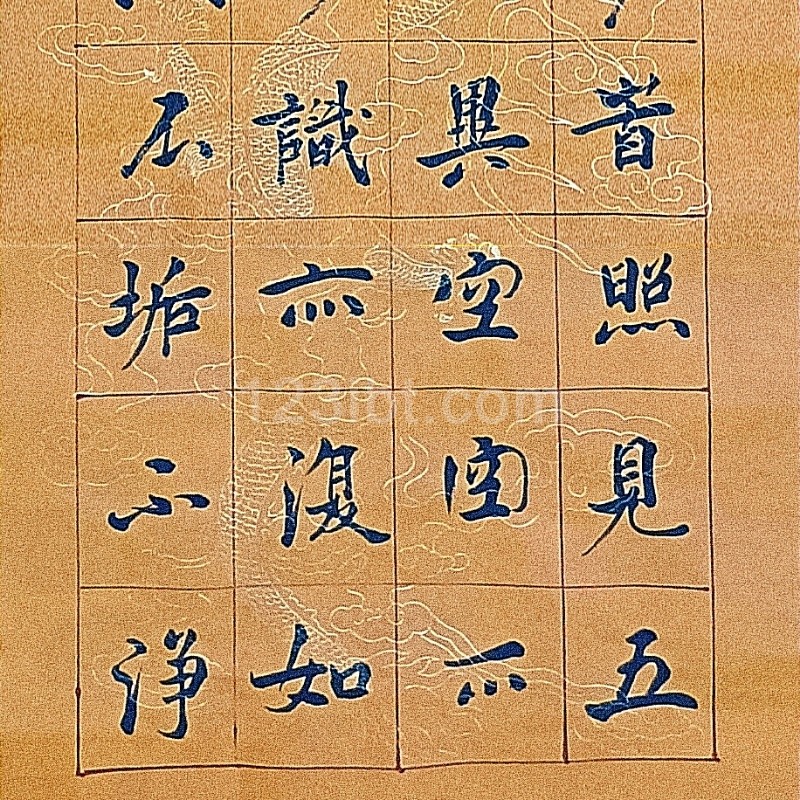 旹照見五
異空空不
識亦復如
不垢不淨
123rbt.com